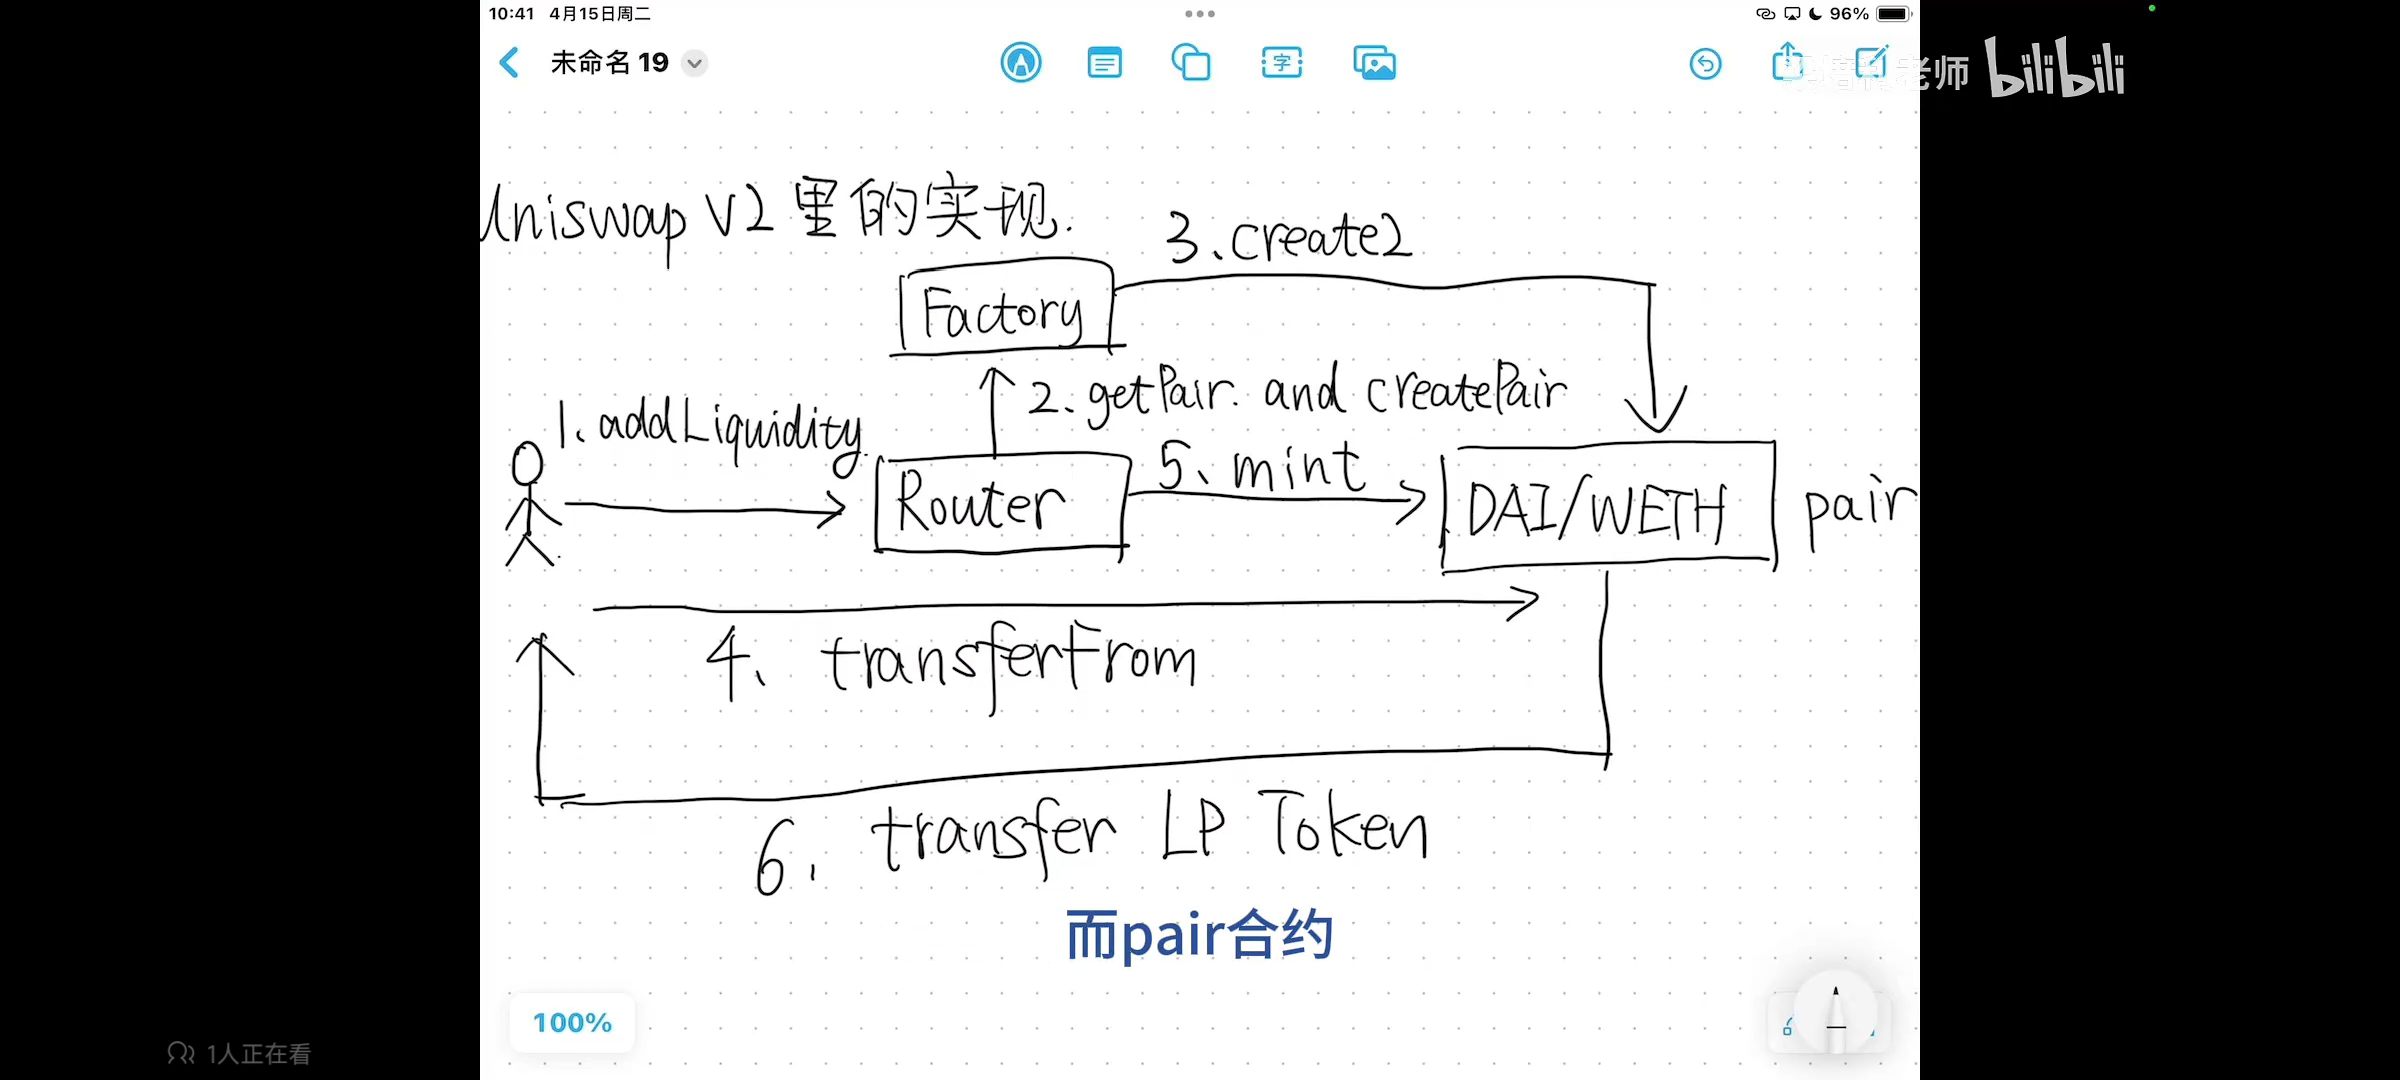 10:41 4月15日周二
96%
未命名 19
字
老师 bilibili
Uniswap V2 里的实现.
3、create2
Factory
2、getPair. and createPair
1、addLiquidity.
Router
5、mint
DAI/WETH
pair
4、transferFrom
6、transfer LP Token
而pair合约
100%
1人正在看